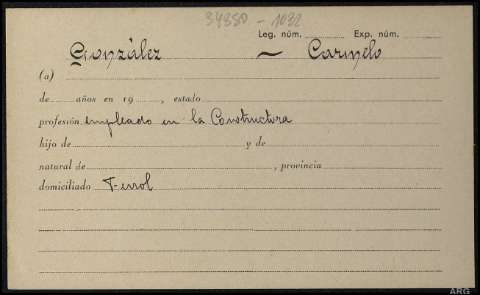 34880 - 1032
Leg. núm. Exp. núm.
González — Carmelo
(a)
de años en 19 , estado
profesión empleado en la Constructora
hijo de y de
natural de , provincia
domiciliado Ferrol
ARG